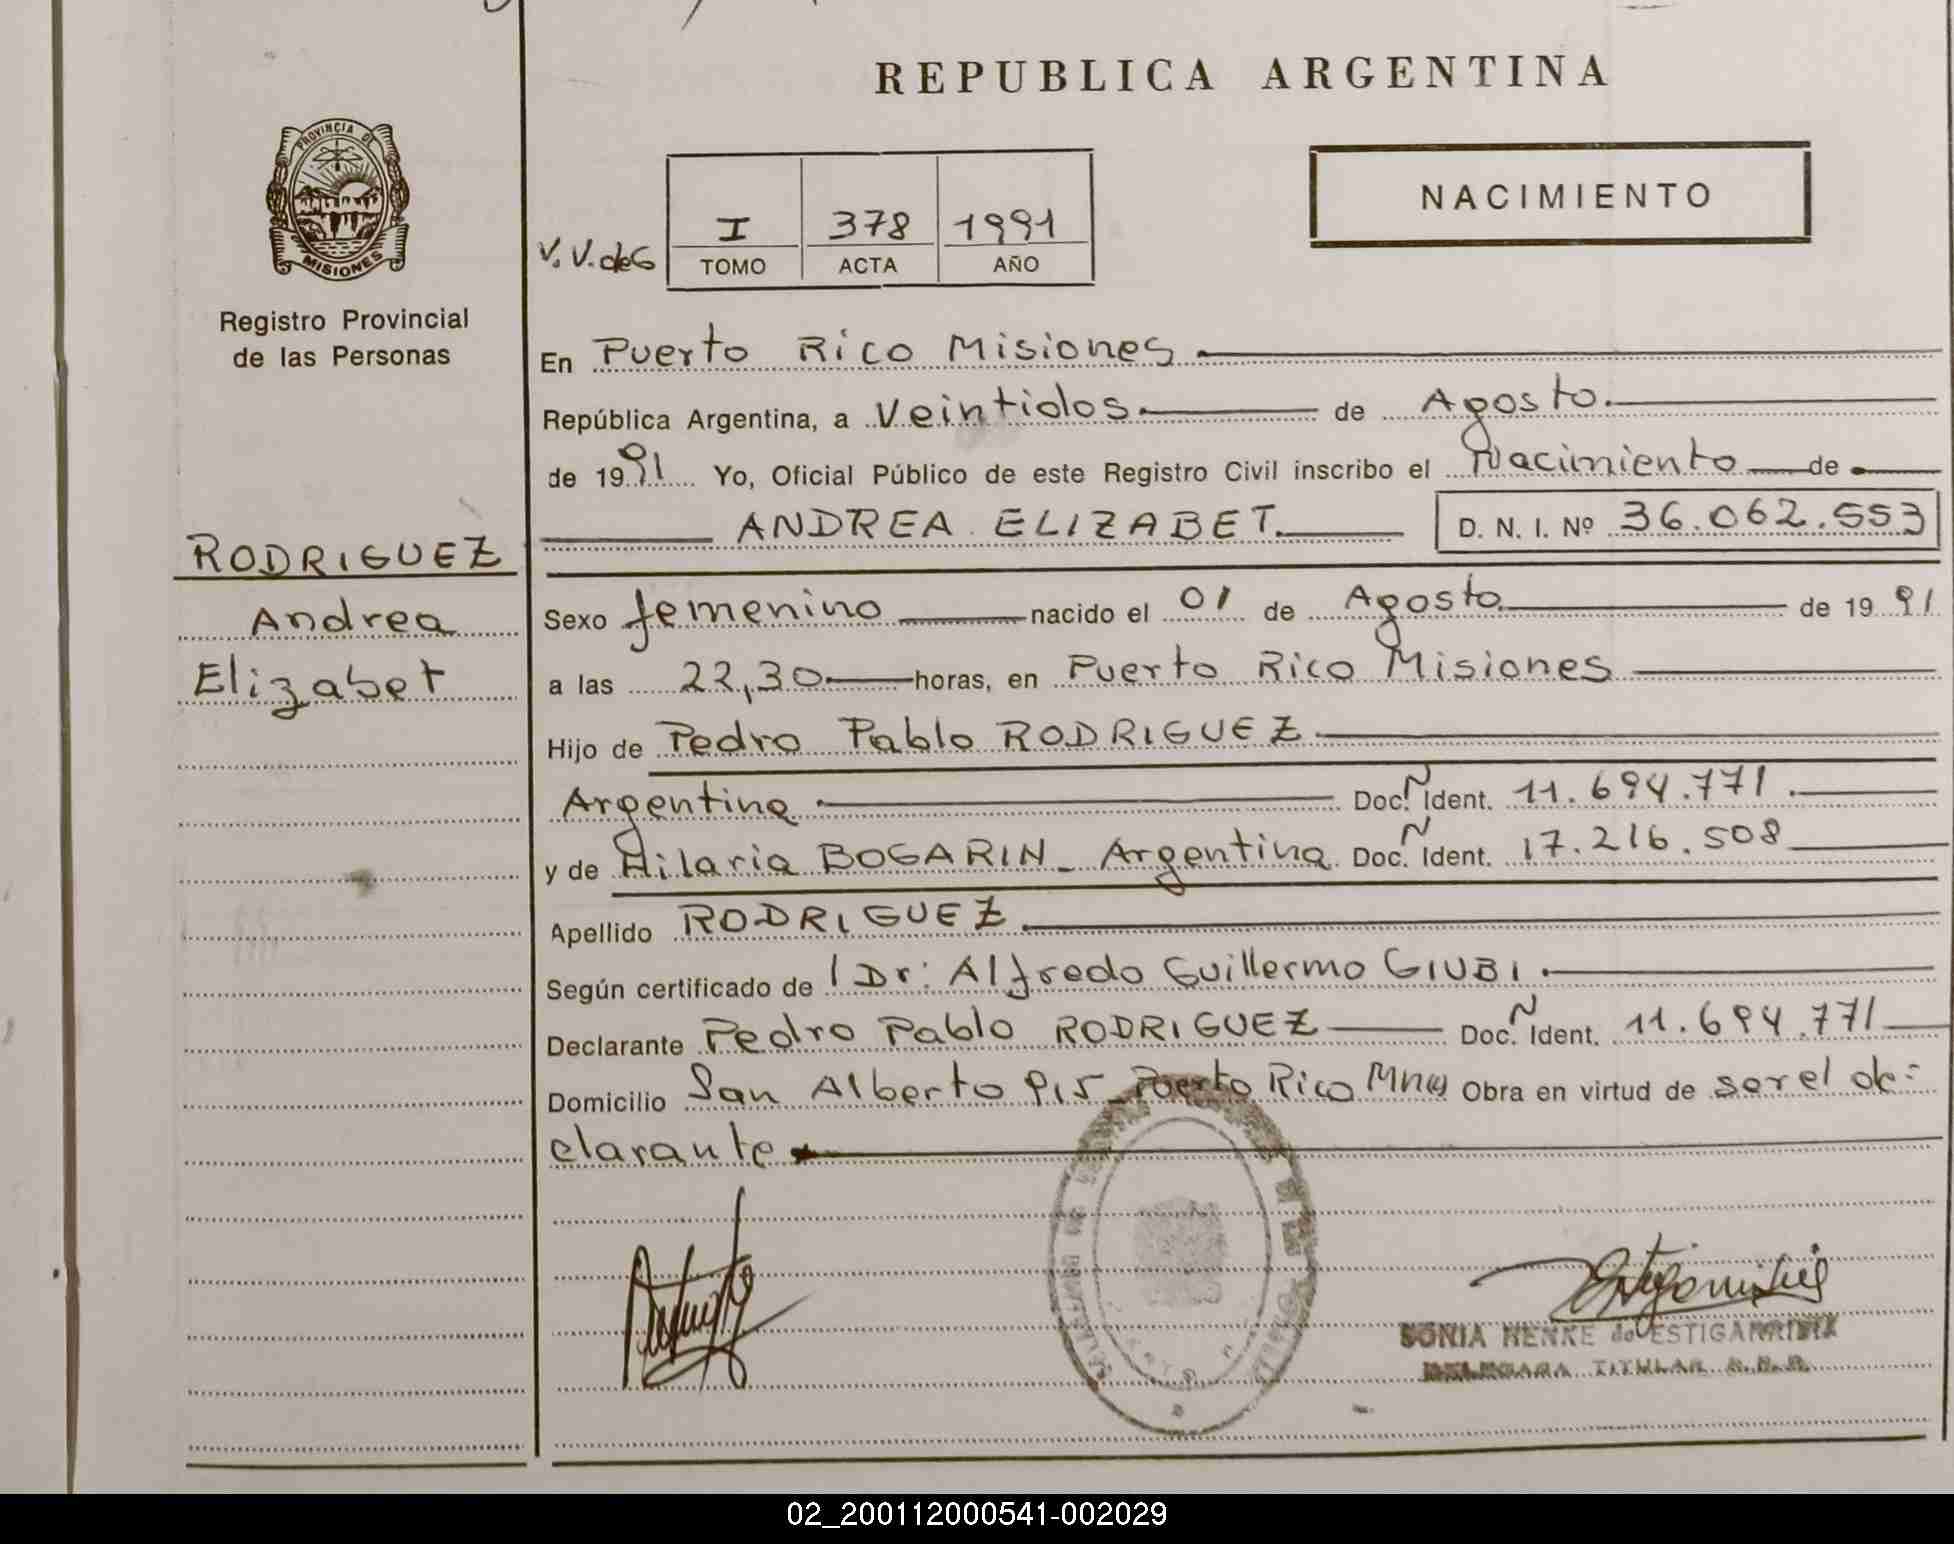 REPUBLICA ARGENTINA
PROVINCIA DE
MISIONES
Registro Provincial
de las Personas
NACIMIENTO
V. V. de G
I 378 1991
TOMO ACTA AÑO
En Puerto Rico Misiones
República Argentina, a Veintidos de Agosto
de 1991 Yo, Oficial Público de este Registro Civil inscribo el Nacimiento de
ANDREA ELIZABET D. N. I. Nº 36.062.553
RODRIGUEZ
Andrea
Elizabet
Sexo femenino nacido el 01 de Agosto de 1991
a las 22,30 horas, en Puerto Rico Misiones
Hijo de Pedro Pablo RODRIGUEZ
Argentina Doc. Ident. 11.694.771
y de Hilaria BOGARIN - Argentina Doc. Ident. 17.216.508
Apellido RODRIGUEZ
Según certificado de Dr: Alfredo Guillermo GIUBI
Declarante Pedro Pablo RODRIGUEZ Doc. Ident. 11.694.771
Domicilio San Alberto Puerto Rico Obra en virtud de ser el de-
clarante
SONIA HENKE de ESTIGARRIBIA
DELEGADA TITULAR R.P.P.
02_200112000541-002029